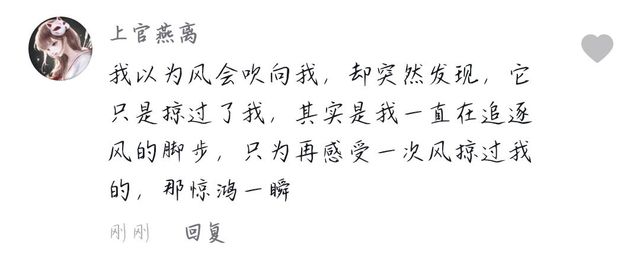 上官燕离
我以为风会吹向我，却突然发现，它
只是掠过了我，其实是我一直在追逐
风的脚步，只为再感受一次风掠过我
的，那惊鸿一瞬
刚刚 回复